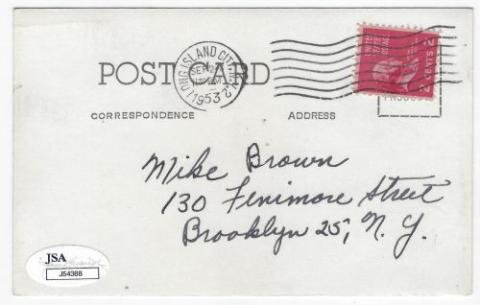 POST CARD
LONG ISLAND CITY, N.Y.
SEP
1953
2 CENTS 2
CORRESPONDENCE
ADDRESS
Mike Brown
130 Fenimore Street
Brooklyn 25, N. Y.
JSA
J54388